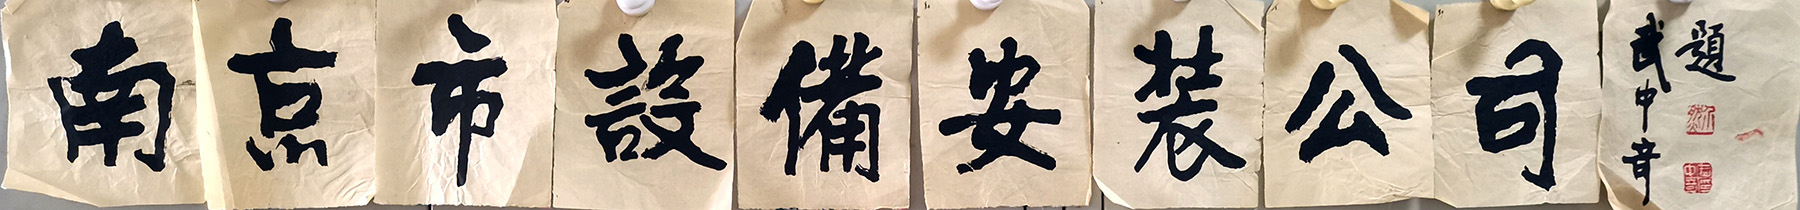 南京市設備安装公司
武中奇題